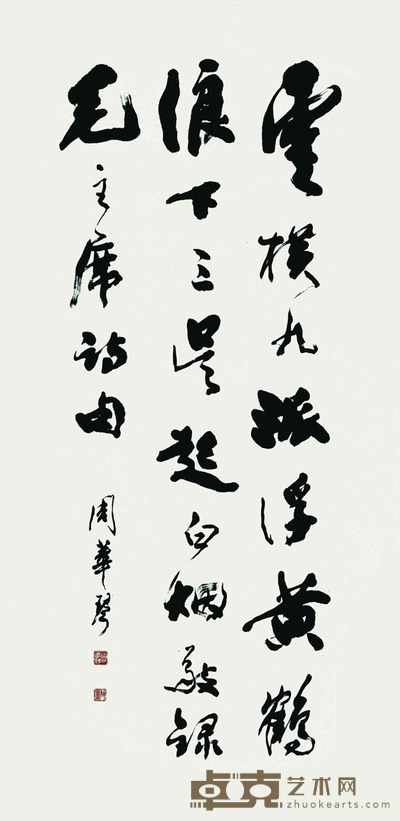 雲横九派浮黄鶴
浪下三吴起白烟敬録
毛主席詩句
周華琴
卓克艺术网
zhuokearts.com